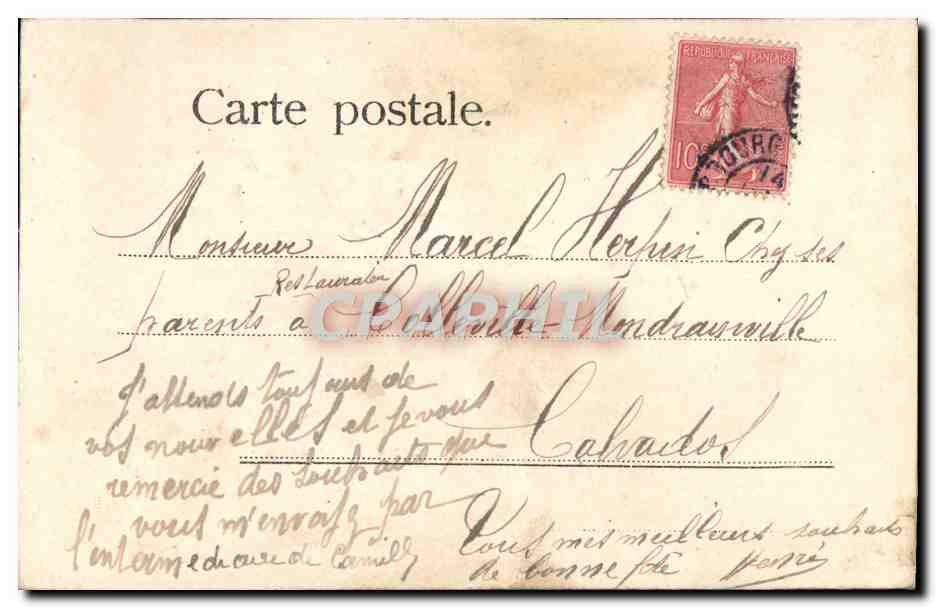 Carte postale.
REPUBLIQUE FRANÇAISE
10
BOURG
14
Monsieur Marcel Herpin Chez ses
Restaurateur
parents à Colleville-Mondrainville
Calvados
CPAPHIL
J'attends toujours de
vos nouvelles et je vous
remercie des souhaits que
vous m'envoyez par
l'intermediaire de Camille
Tous mes meilleurs souhaits
de bonne fête Henri